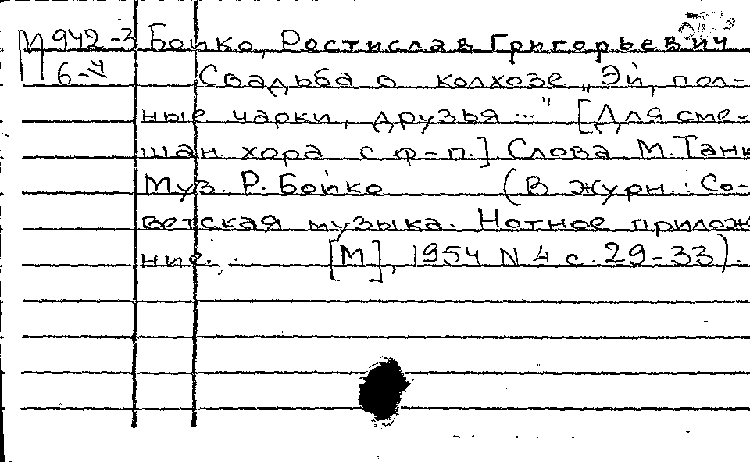 М942-3 Бойко, Ростислав Григорьевич
6-У Свадьба в колхозе „Эй, пол-
ные чарки, друзья..." [Для сме-
шан хора с ф-п.] Слова М. Танк
Муз. Р. Бойко (В журн.: Со-
ветская музыка. Нотное прилож
ние. [М], 1954 N 4 с. 29-33).